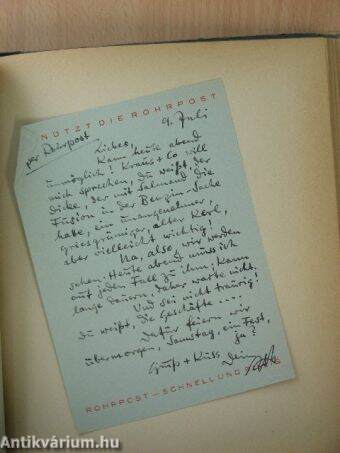 NÜTZT DIE ROHRPOST
per Rohrpost
9. Juli
Liebes,
Kann heute abend
unmöglich! Kraus + Co will
mich sprechen, du weißt, der
dicke, der mit Salmand die
Fusion in der Benzin-Sache
habe, ein unangenehmer,
griesgrämiger, alter Kerl,
aber vielleicht wichtig!
Na, also, wir werden
sehen. Heute abend muss ich
auf jeden Fall zu ihm; kann
lange dauern, daher warte nicht.
Und sei nicht traurig!
du weißt, die Geschäfte ...
Dafür feiern wir
übermorgen, Samstag, ein Fest,
ja?
Gruß + Kuss Dein
ROHRPOST — SCHNELLPOST
Antikvárium.hu